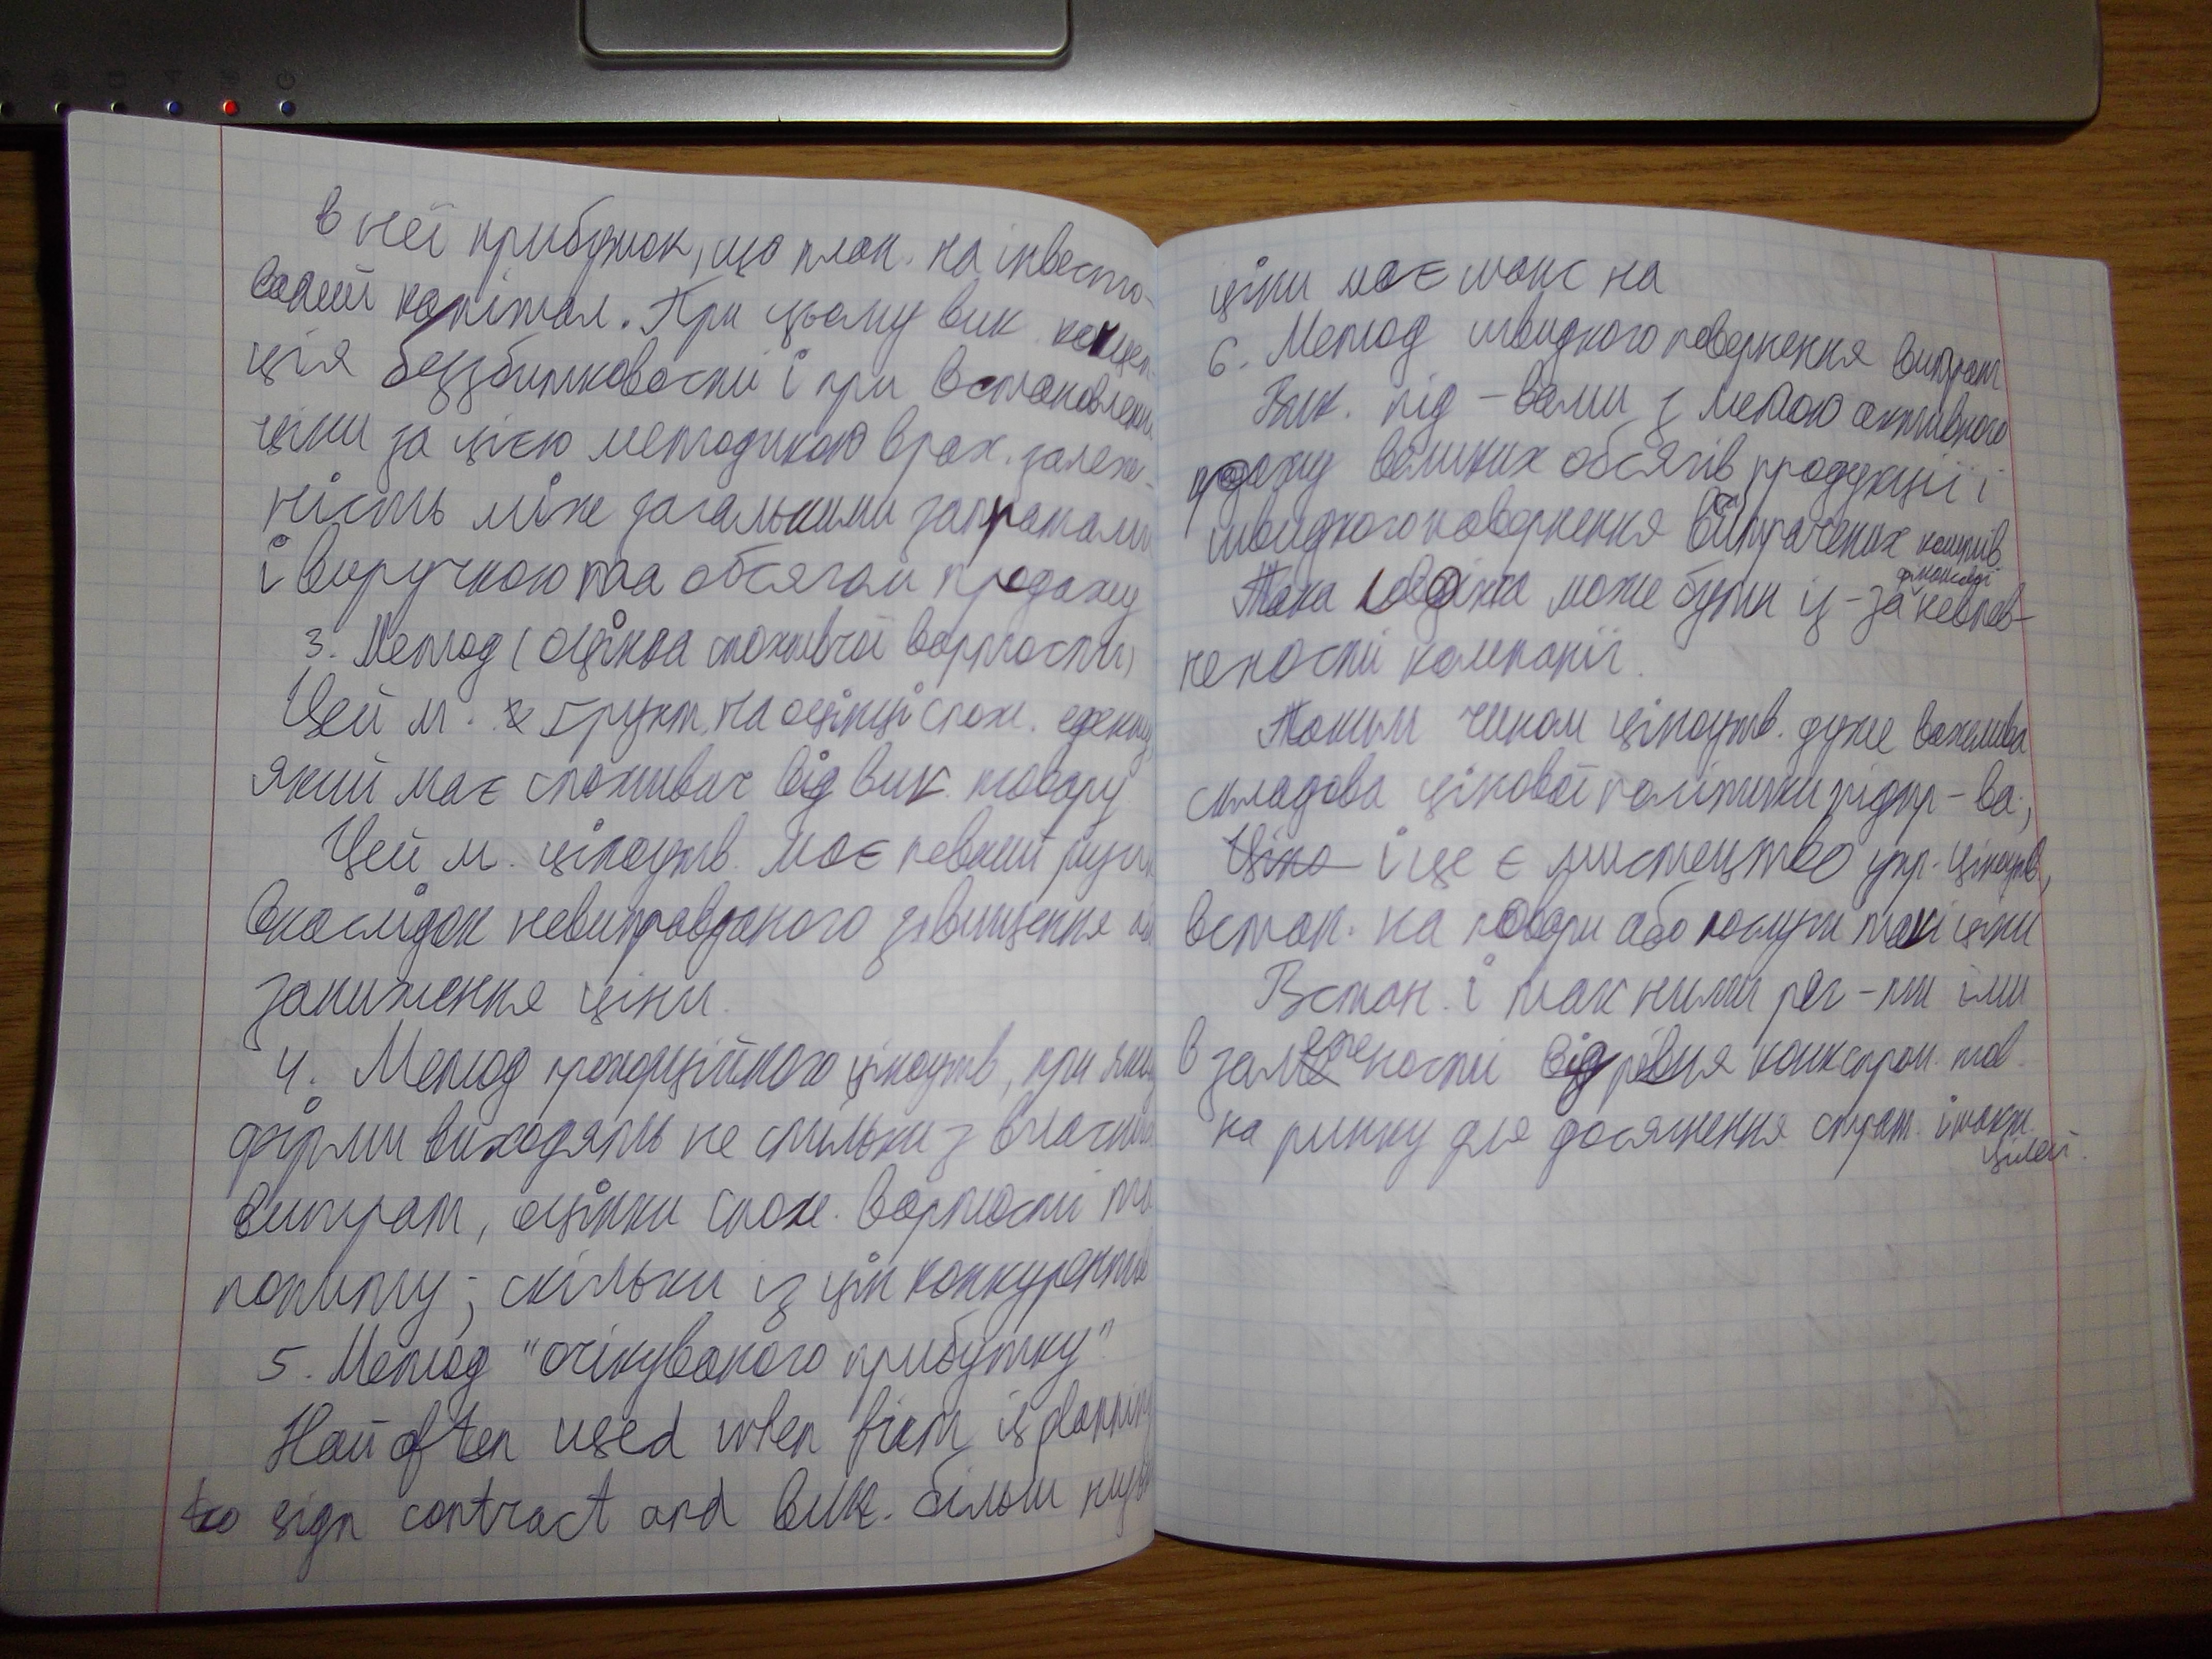 в неї прибуток, що план. на інвесто-
ваний капітал. При цьому вик. концеп-
ція беззбитковости і при встановленн
ціни за цією методикою врах. залеж-
ність між загальними затратами
і виручкою та обсягом продажу
3. Метод (оцінка споживчої вартости)
Цей м. ґрунт. на оцінці спож. ефекту,
який має споживач від вик. товару
Цей м. ціноутв. має певний ризик
внаслідок невиправданого завищення
заниження ціни.
4. Метод ціноутв, при яких
фірми виходять не стільки з власних
витрат, оцінки спож. вартости та
попиту; скільки із цін конкурентів
5. Метод "очікуваного прибутку"
Най often used when firm is planning
to sign contract and вик. більш низь
ціни має шанс на
6. Метод швидкого повернення витрат
Вик. під-вами з метою активного
продажу великих обсягів продукції і
швидкого повернення витрачених коштів
Така може бути із-за фінансової невпев-
нености компанії.
Таким чином ціноутв. дуже важлива
складова цінової політики підпр-ва;
Ціно і це є мистецтво упр. ціноутв,
встан. на товари або послуги такі ціни
Встан. і так ними рег-ти їми
в залежности від рівня конкспром. тов.
на ринку для досягнення страт. і такт.
цілей.